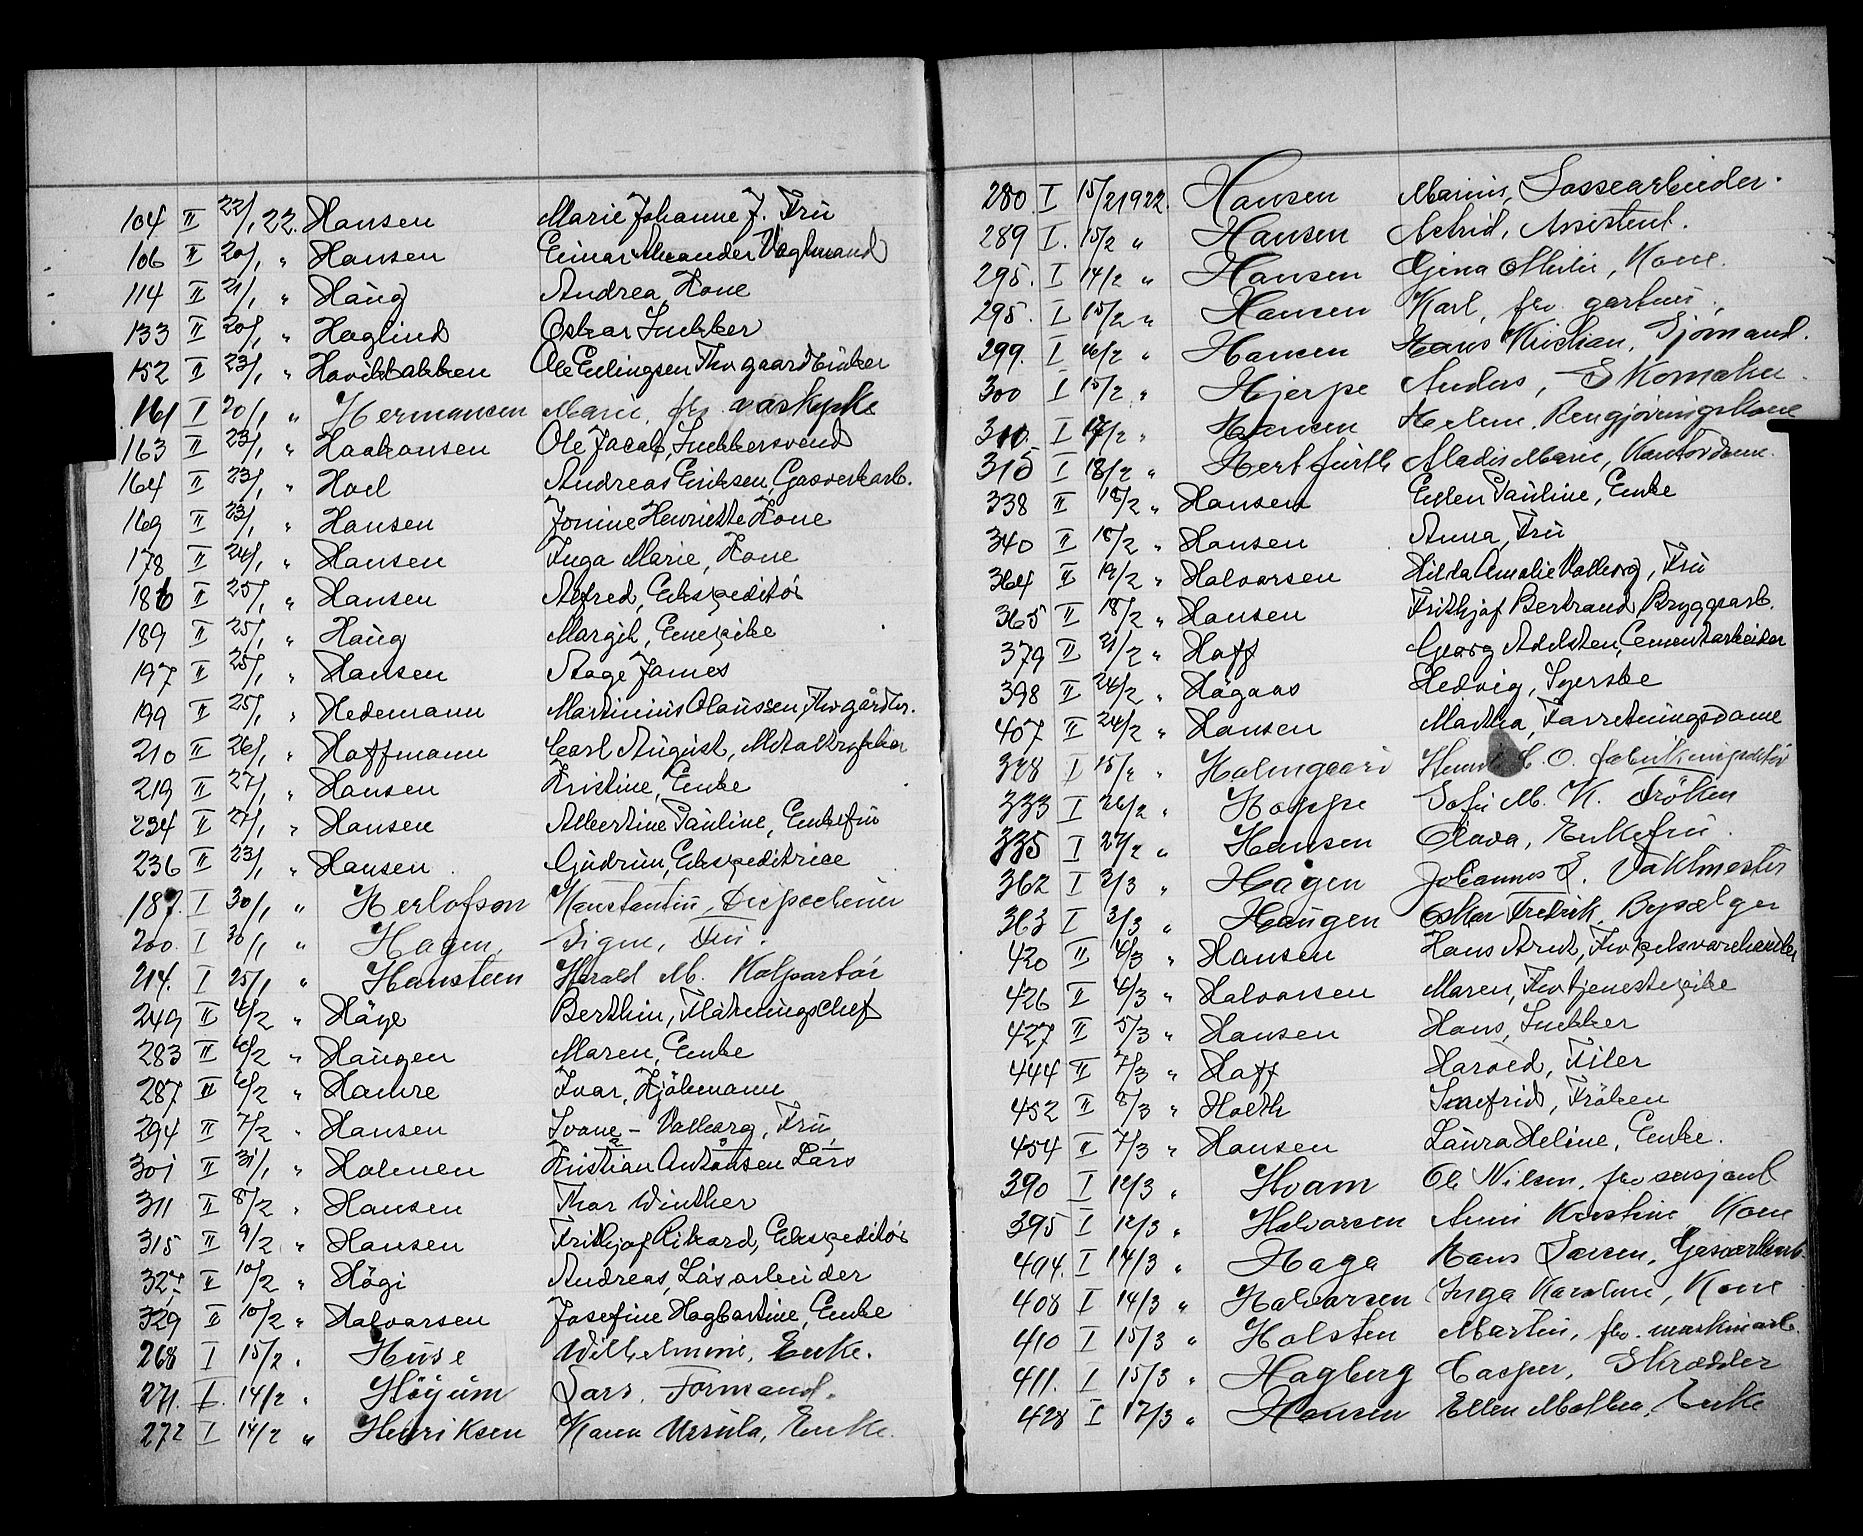 104 II 22/1 22. Hansen Marie Johanne J. Frü
106 II 20/1 " Hansen Einar Alexander Vaghmand
114 II 21/1 " Haüg Andrea, Kone
133 II 20/1 " Haglünd Oskar Snekker
152 II 23/1 " Havikbakken Ole Erlingsen Fhv gaardbrüker
161 I 20/1 " Hermansen Marie, fhv. vaskepike
163 II 23/1 " Haakonsen Ole Jacob, Snekkersvend
164 II 23/1 " Hoel Andreas Eriksen Gasverkarb.
169 II 23/1 " Hansen Jonine Henriette Kone
178 II 24/1 " Hansen Inga Marie, Kone
186 II 25/1 " Hansen Alfred, Ekspeditör
189 II 25/1 " Haüg Margit, Enepike
197 II 25/1 " Hansen Aage James
199 II 25/1 " Hedemann Martinius Olaüssen, Fhv gårdbr.
210 II 26/1 " Hoffmann Carl Aügüst, Metaltrykker
219 II 27/1 " Hansen Kristine, Enke
234 II 27/1 " Hansen Albertine Paüline, Enkefrü
236 II 23/1 " Hansen Güdrün, Ekspeditrice
187. I 30/1 " Herlofson Konstantin, Disponent
200. I 30/1 " Hagen Signe, Frü.
214. I 25/1 " Hansteen Harald M. Kolportör
249 II 6/2 " Häye Berthin, Flåtningschef
283 II 6/2 " Haügen Maren, Enke
287 II 6/2 " Hamre Ivar, Kjöbmann
294 II 7/2 " Hansen Ivane - Valborg, Frü
301 II 31/1 " Holmen Kristian Antonsen Lårs
311 II 8/2 " Hansen Thor Winther
315 II 9/2 " Hansen Frithjof Rikard, Ekspeditör
327 II 10/2 " Högi Andreas, Løsarbeider
329 II 10/2 " Halvorsen Josefine Hagbartine, Enke
268 I 15/2 " Hüse Wilhelmine, Enke.
271. I. 14/2 " Höyüm Lars, Formand.
272 I 14/2 " Henriksen Karen Ursüla, Enke.
280 I 15/2 1922. Hansen Marius, Lossearbeider.
289 I. 15/2 " Hansen Astrid, Assistent.
295. I 14/2 " Hansen Gina Otilie, Kone.
295. I 15/2 " Hansen Karl, fhv. gartner.
299. I 16/2 " Hansen Hans Kristian, Sjömand.
300 I 15/2 " Hjerpe Anders, Skomaker.
311. I 17/2 " Hansen Helene, Rengjöringskone
315 I 18/2 " Hertfürth Aladis Marie, Kontordame.
338 II 18/2 " Hansen Ellen Paüline, Enke
340 II 18/2 " Hansen Anna, Frü
364 II 19/2 " Halvorsen Hilda Amalie Valborg, Frü
365 II 18/2 " Hansen Frithjof Bertrand Bryggearb.
379 II 21/2 " Hoff Georg Adelsten, Cementarbeider
398 II 24/2 " Hågaas Hedvig, Syerske
407 II 24/2 " Hansen Martha, Forretningsdame
328 I 15/2 " Holmgaard C. O.
333 I 26/2 " Hoppe Sofie M. K. Fröken
335 I 27/2 " Hansen Olava, Enkefrü.
362 I 2/3 " Hagen Johannes L. Vaktmester
363 I 3/3 " Haugen Oskar Fredrik, Bypælger
420 II 4/3 " Hansen Hans Arnt, Fhv pelsvarehandler
426 II 4/3 " Halvorsen Maren, Fhv tjenestepike
427 II 5/3 " Hansen Hans, Snekker
444 II 7/3 " Hoff Harold, Filer
452 II 8/3 " Holth Snefrid, Fröken
454 II 7/3 " Hansen Laüra Heline, Enke.
390 I 12/3 " Hvam Ole Nilsen, fhv sersjant
395 I 12/3 " Halvorsen Anne Kirstine, Kone
404. I 14/3 " Haga Hans Larsen, Gasverkarb.
408 I 14/3 " Halvorsen Inga Karoline, Kone
410 I 15/3 " Holsten Martin, fhv. maskinarb.
411. I 15/3 " Hagberg Casper, Skrædder
428 I 17/3 " Hansen Ellen Mathea, Enke